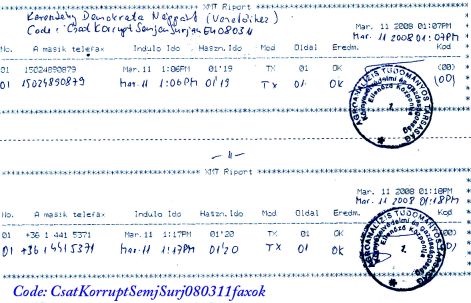 XMT Riport
Kereszdény Demokrata Néppárt (Vezetőihez)
Code: CsatKorruptSemjénSurjánEU080311
Mar. 11 2008 01:07PM
Mar. 11 2008 01:07PM
No. A masik telefax Indulo Ido Haszn.Ido Mod Oldal Eredm. Kod
01 15024890879 Mar.11 1:06PM 01'19 TX 01 OK (00)
01 15024890879 Mar.11 1:06PM 01'19 TX 01 OK (00)
AGROANALÍZIS TUDOMÁNYOS TÁRSASÁG
Környezetvédelmi és gazdaságossági
Ellenőrző Központja
2.
- 11 -
XMT Riport
Mar. 11 2008 01:18PM
Mar. 11 2008 01:18PM
No. A masik telefax Indulo Ido Haszn.Ido Mod Oldal Eredm. Kod
01 +36 1 441 5371 Mar.11 1:17PM 01'20 TX 01 OK
01 +36 1 441 5371 Mar.11 1:17PM 01'20 TX 01 OK
AGROANALÍZIS TUDOMÁNYOS TÁRSASÁG
Környezetvédelmi és gazdaságossági
Ellenőrző Központja
2.
Code: CsatKorruptSemjSurj080311faxok